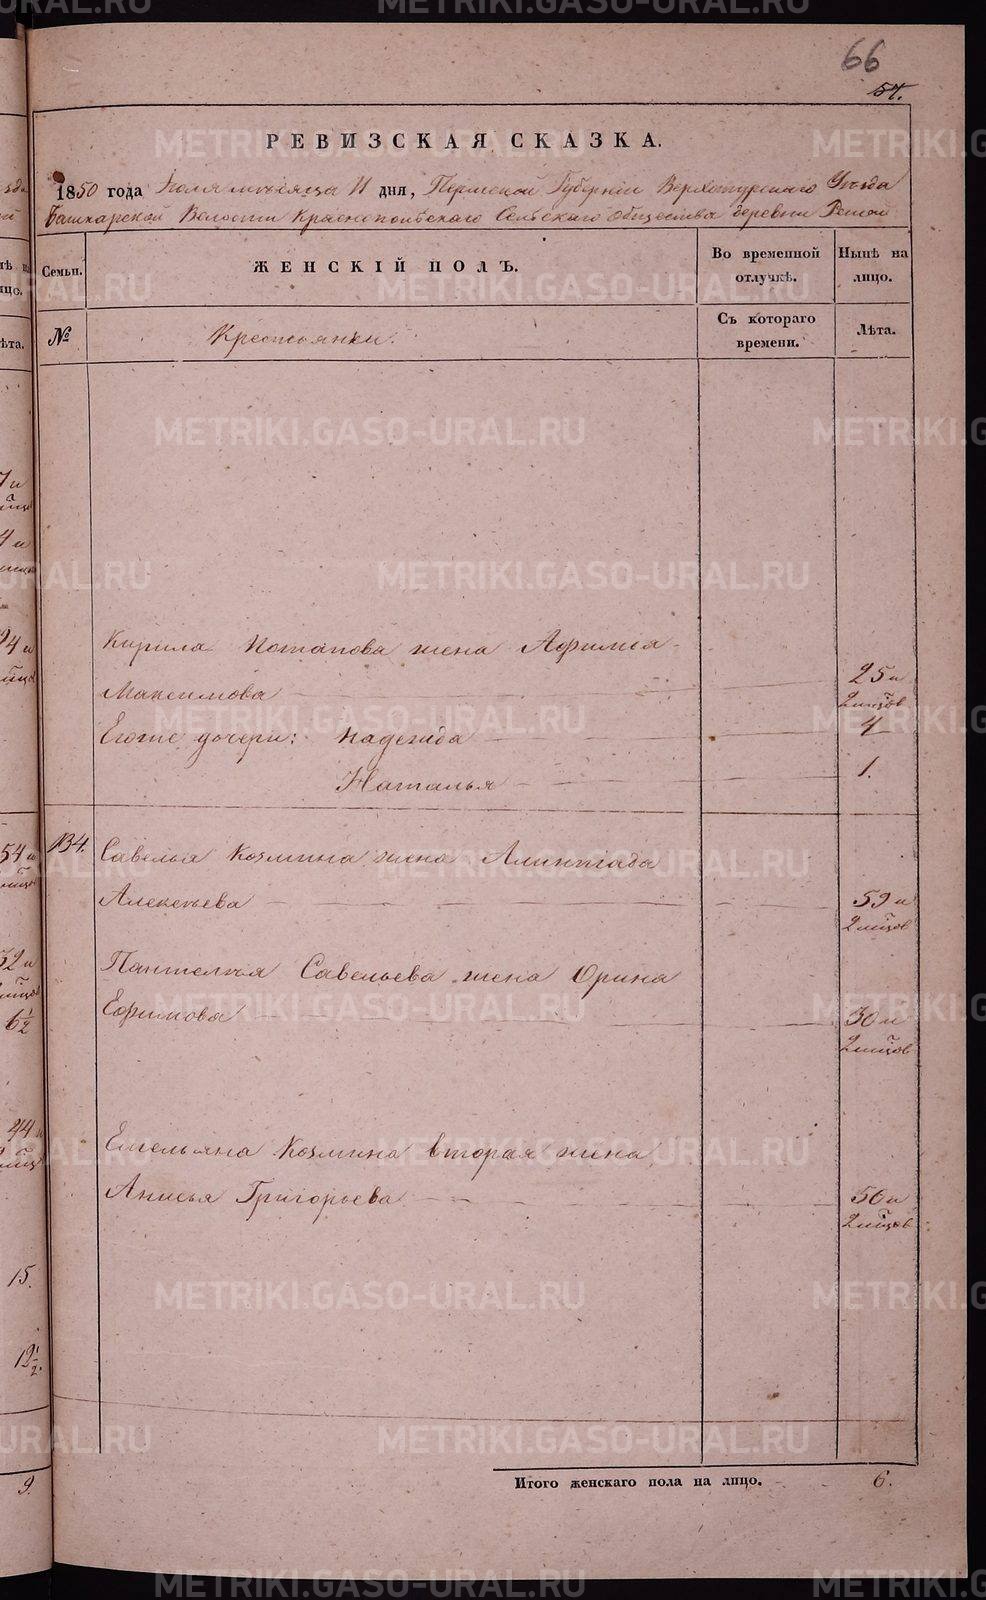 METRIKI.GASO-URAL.RU
66
57.
РЕВИЗСКАЯ СКАЗКА.
1850 года Іюля мѣсяца 11 дня, Пермской Губерніи Верхотурскаго Уѣзда
Башкарской Волости Краснопольскаго Сельскаго Общества деревни
Семьи.
ЖЕНСКІЙ ПОЛЪ.
Во временной отлучкѣ.
Нынѣ на лицо.
№
Крестьянки.
Съ котораго времени.
Лѣта.
Кирила Потапова жена Афимья
Максимова 25 и
2 мцов
Егоже дочери: Надежда 4
Наталья 1.
134. Савелья Козмина жена
Алексѣева 59 и
2 мцов
Пантелѣя Савельева жена Орина
Ефимова 30 и
2 мцов
Емельяна Козмина вторая жена
Анисья Григорьева 56 и
2 мцов
Итого женскаго пола на лицо. 6.